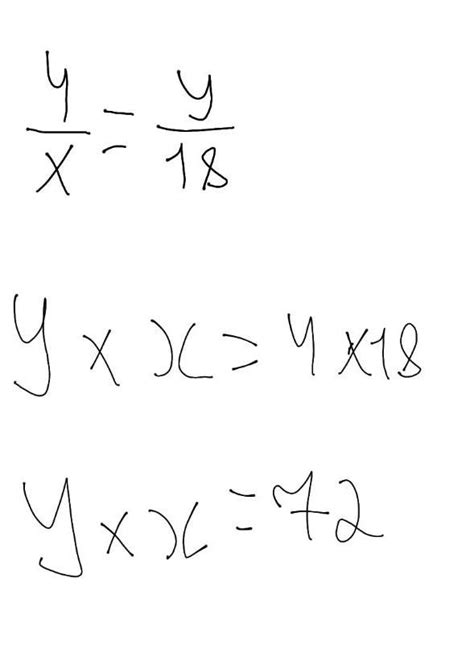 4/x = y/18
y × x = 4 × 18
y × x = 72